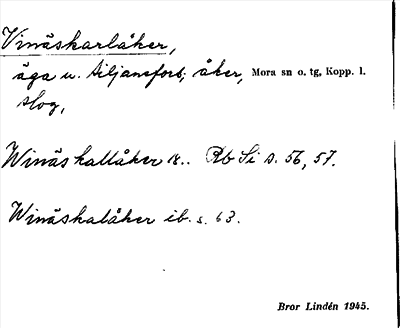 Vinäskarlåker,
äga u. Siljansfors, åker, Mora sn o. tg, Kopp. l.
skog,
Winäskallåker 18.. Rb Si s. 56, 57.
Winäskalåker ib. s. 63.
Bror Lindén 1945.